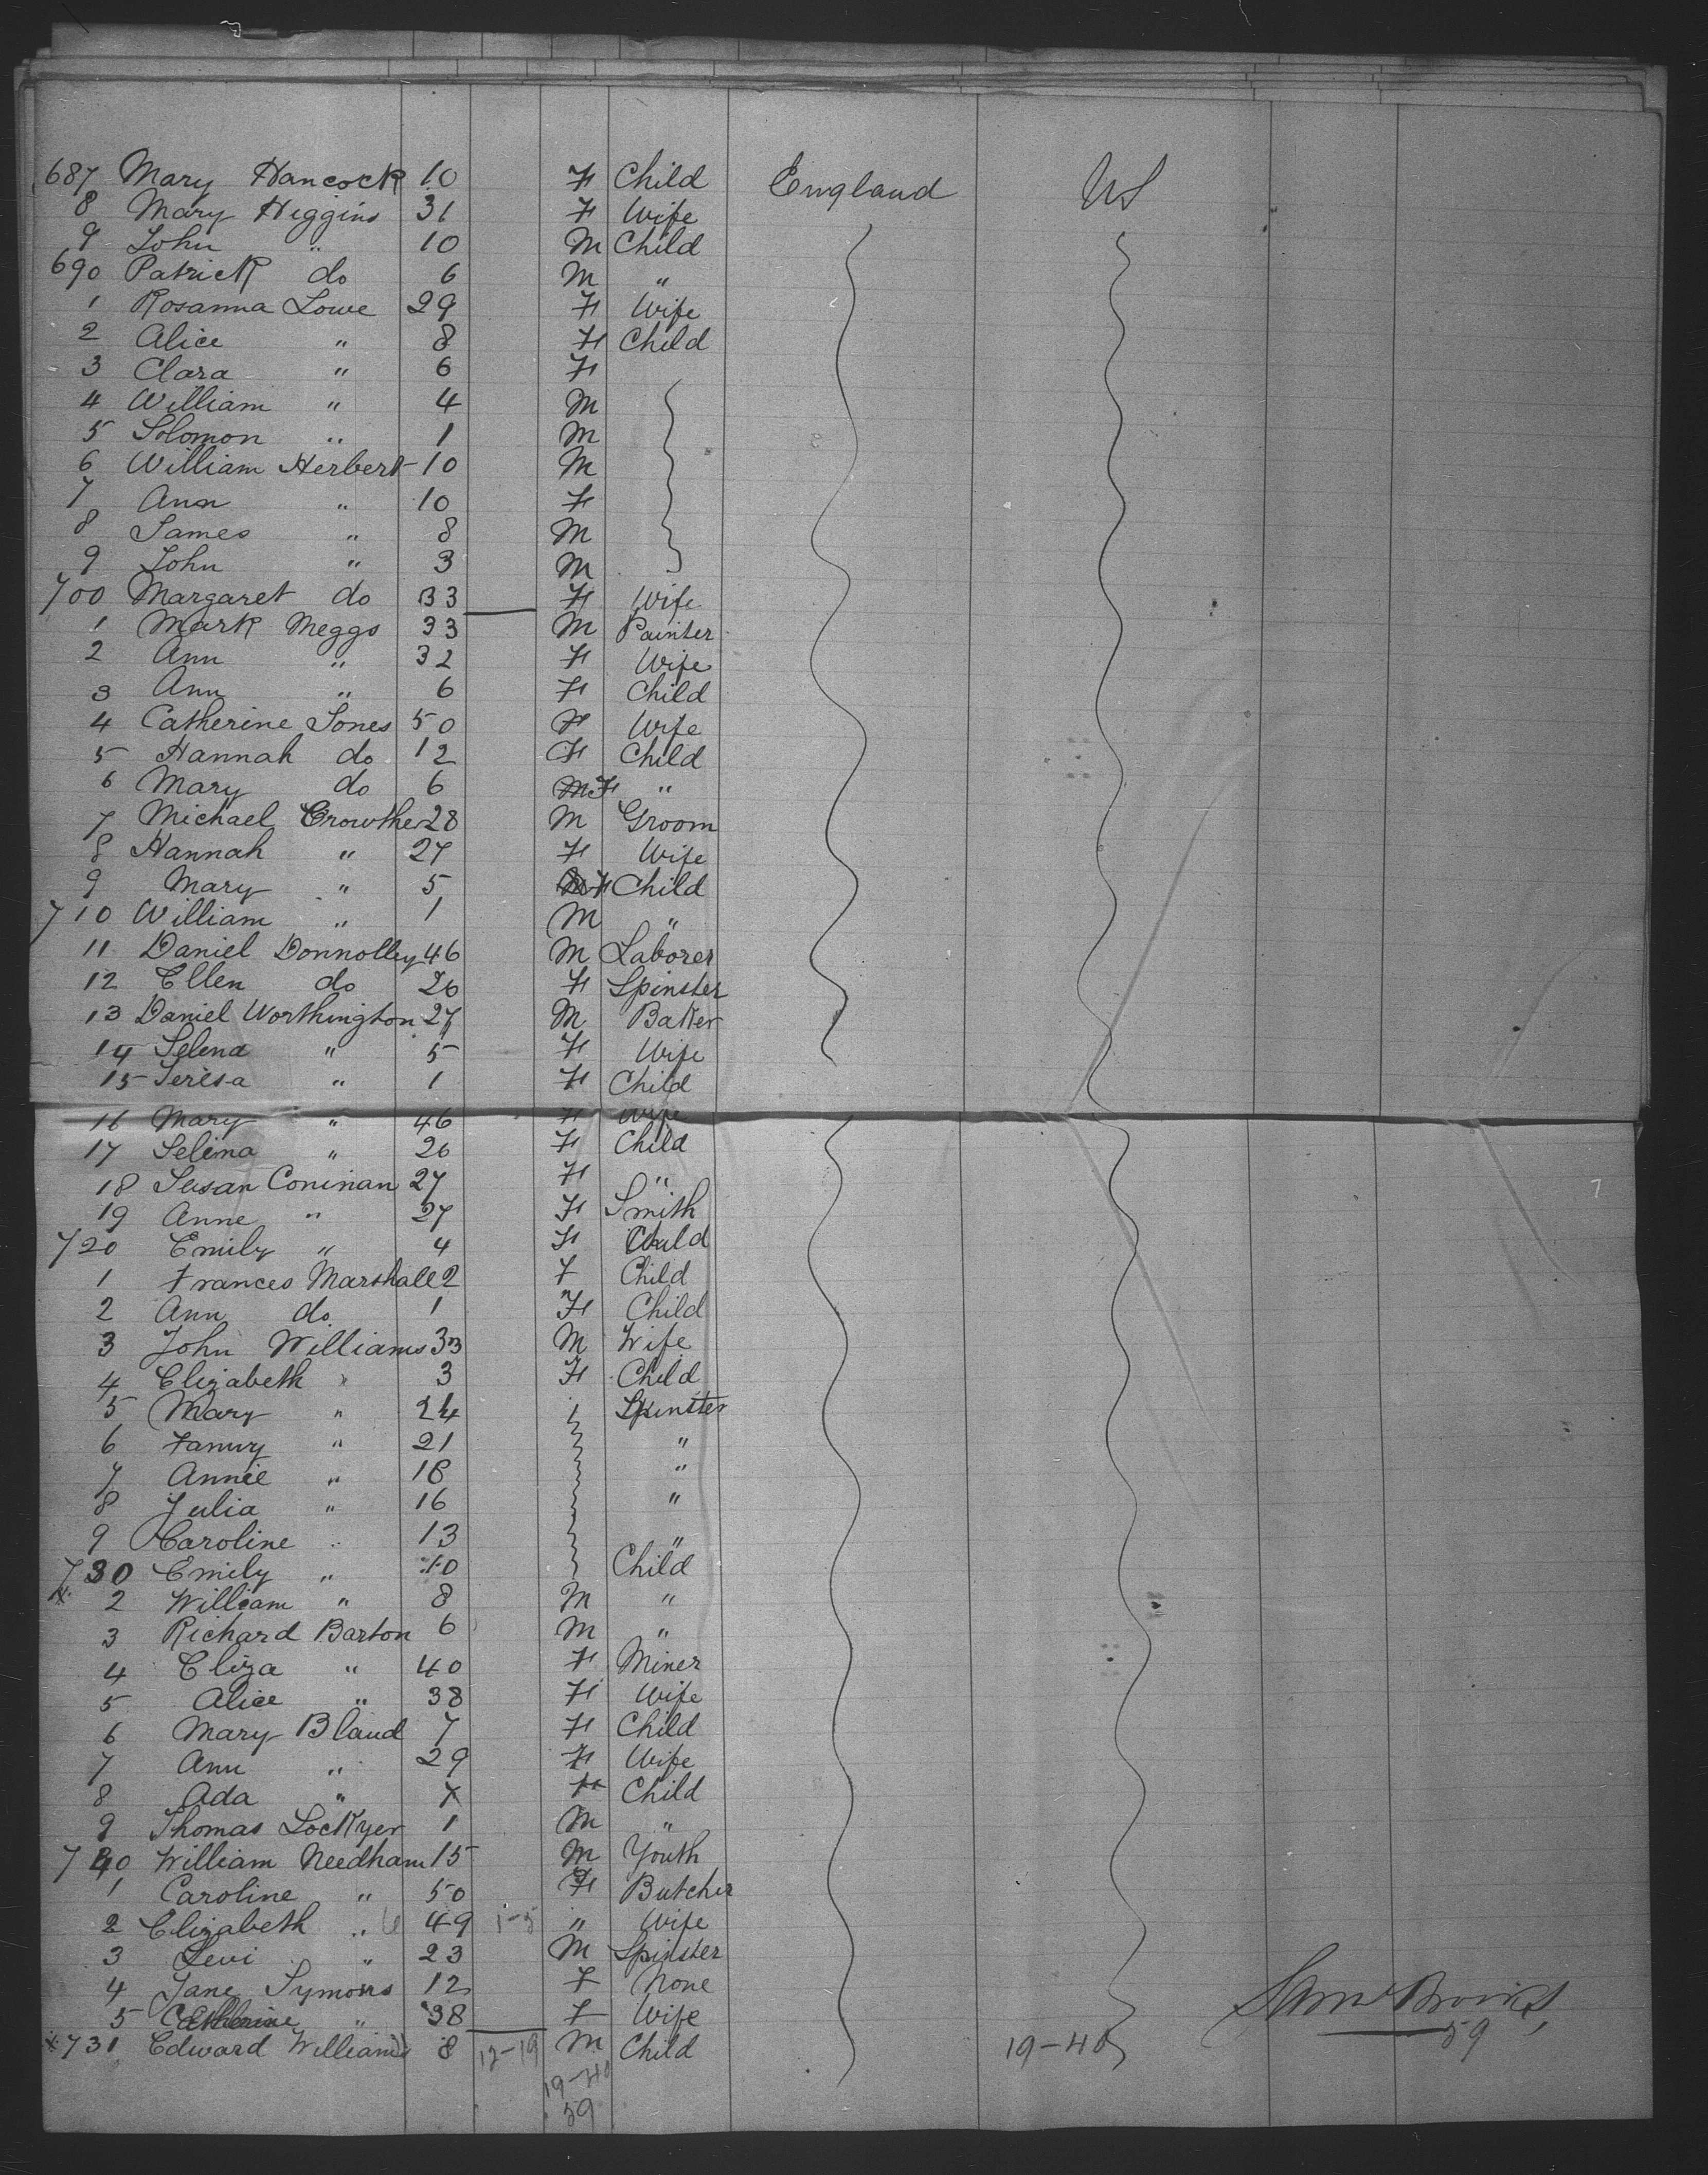 687 Mary Hancock 10 F Child England US
8 Mary Higgins 31 F Wife
9 John " 10 M Child
690 Patrick do 6 M "
1 Rosanna Lowe 29 F Wife
2 Alice " 8 F Child
3 Clara " 6 F
4 William " 4 M
5 Solomon " 1 M
6 William Herbert 10 M
7 Ann " 10 F
8 James " 8 M
9 John " 3 M
700 Margaret do 33 F Wife
1 Mark Meggs 33 M Painter
2 Ann " 32 F Wife
3 Ann " 6 F Child
4 Catherine Jones 50 F Wife
5 Hannah do 12 F Child
6 Mary do 6 M F "
7 Michael Crowther 28 M Groom
8 Hannah " 27 F Wife
9 Mary " 5 M F Child
710 William " 1 M "
11 Daniel Donnolley 46 M Laborer
12 Ellen do 26 F Spinster
13 Daniel Worthington 27 M Baker
14 Selena " 5 F Wife
15 Teresa " 1 F Child
16 Mary " 46 F Wife
17 Selina " 26 F Child
18 Susan Coninan 27 F "
19 Anne " 27 F Smith
720 Emily " 4 F Child
1 Frances Marshall 2 F Child
2 Ann do 1 F Child
3 John Williams 33 M Wife
4 Elizabeth " 3 F Child
5 Mary " 24 Spinster
6 Fanny " 21 "
7 Annie " 18 "
8 Julia " 16 "
9 Caroline " 13 "
730 Emily " 10 Child
2 William " 8 M "
3 Richard Barton 6 M "
4 Eliza " 40 F Miner
5 Alice " 38 F Wife
6 Mary Bland 7 F Child
7 Ann " 29 F Wife
8 Ada " F Child
9 Thomas Lockyer 1 M "
740 William Needham 15 M Youth
1 Caroline " 50 F Butcher
2 Elizabeth " 49 1-5 " Wife
3 Levi " 23 M Spinster
4 Jane Symons 12 F None
5 Catherine " 38 F Wife
x731 Edward Williams 8 12-19 M Child 19-40 59
19-40
59